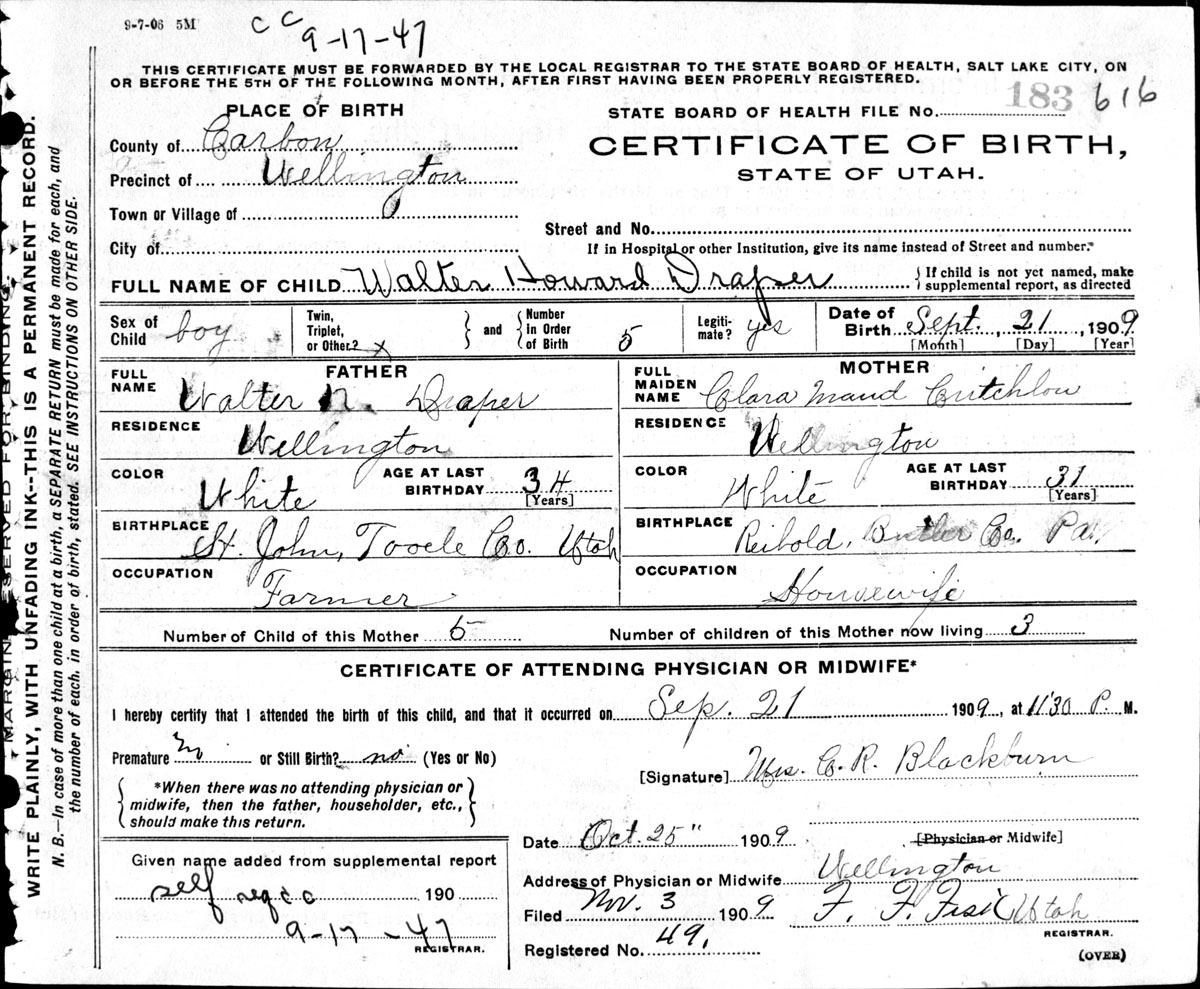 9-7-06 5M
C C
9-17-47
THIS CERTIFICATE MUST BE FORWARDED BY THE LOCAL REGISTRAR TO THE STATE BOARD OF HEALTH, SALT LAKE CITY, ON
OR BEFORE THE 5TH OF THE FOLLOWING MONTH, AFTER FIRST HAVING BEEN PROPERLY REGISTERED.
PLACE OF BIRTH
County of Carbon
Precinct of Wellington
Town or Village of
City of
STATE BOARD OF HEALTH FILE NO. 183 616
CERTIFICATE OF BIRTH,
STATE OF UTAH.
Street and No.
If in Hospital or other Institution, give its name instead of Street and number.
FULL NAME OF CHILD Walter Howard Draper {If child is not yet named, make
supplemental report, as directed
Sex of Child boy
Twin, Triplet, or Other? x } and { Number in Order of Birth 5
Legiti-mate? yes
Date of Birth Sept. 21, 1909
[Month] [Day] [Year]
FATHER
FULL NAME Walter N. Draper
RESIDENCE Wellington
COLOR White AGE AT LAST BIRTHDAY 34 [Years]
BIRTHPLACE St. John, Tooele Co. Utah
OCCUPATION Farmer
MOTHER
FULL MAIDEN NAME Clara Maud Critchlow
RESIDENCE Wellington
COLOR White AGE AT LAST BIRTHDAY 31 [Years]
BIRTHPLACE Reibold, Butler Co. Pa.
OCCUPATION Housewife
Number of Child of this Mother 5 Number of children of this Mother now living 3
CERTIFICATE OF ATTENDING PHYSICIAN OR MIDWIFE*
I hereby certify that I attended the birth of this child, and that it occurred on Sep. 21 1909, at 11:30 P. M.
Premature no or Still Birth? no (Yes or No)
[Signature] Mrs. C. R. Blackburn
*When there was no attending physician or
midwife, then the father, householder, etc.,
should make this return.
[Physician or Midwife]
Date Oct. 25" 1909
Address of Physician or Midwife Wellington
Utah
Filed Nov. 3 1909
REGISTRAR.
Registered No. 49,
(OVER)
Given name added from supplemental report
self 190
9-17-47
REGISTRAR.
MARGIN RESERVED FOR BINDING.
WRITE PLAINLY, WITH UNFADING INK--THIS IS A PERMANENT RECORD.
N. B.—In case of more than one child at a birth, a SEPARATE RETURN must be made for each, and
the number of each, in order of birth, stated. SEE INSTRUCTIONS ON OTHER SIDE.